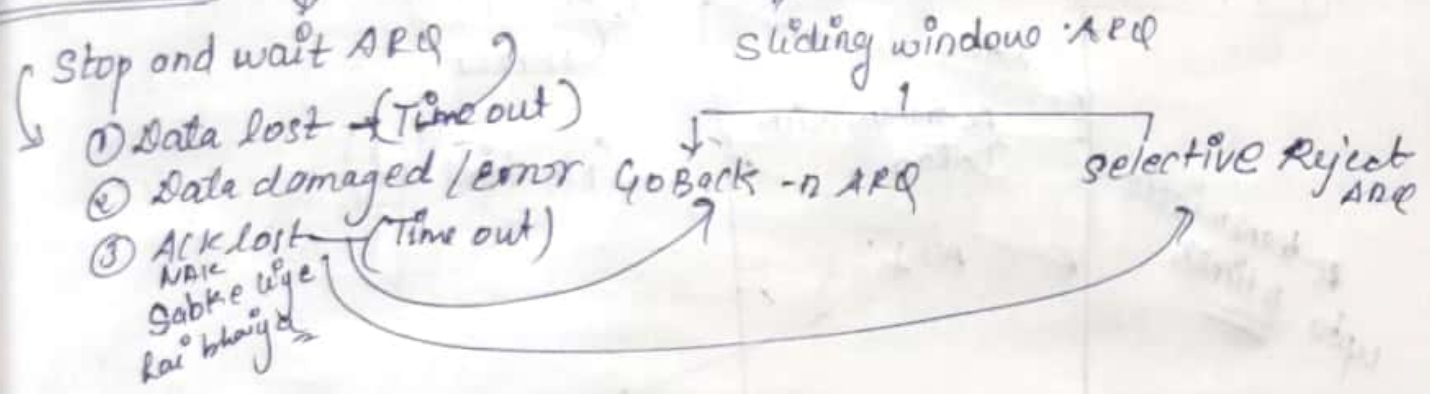 Stop and wait ARQ
① Data lost → (Time out)
② Data damaged / error
③ ACK lost (Time out)
NAK
Sabke liye
hai bhaiya
Sliding window ARQ
GoBack -n ARQ
Selective Reject
ARQ